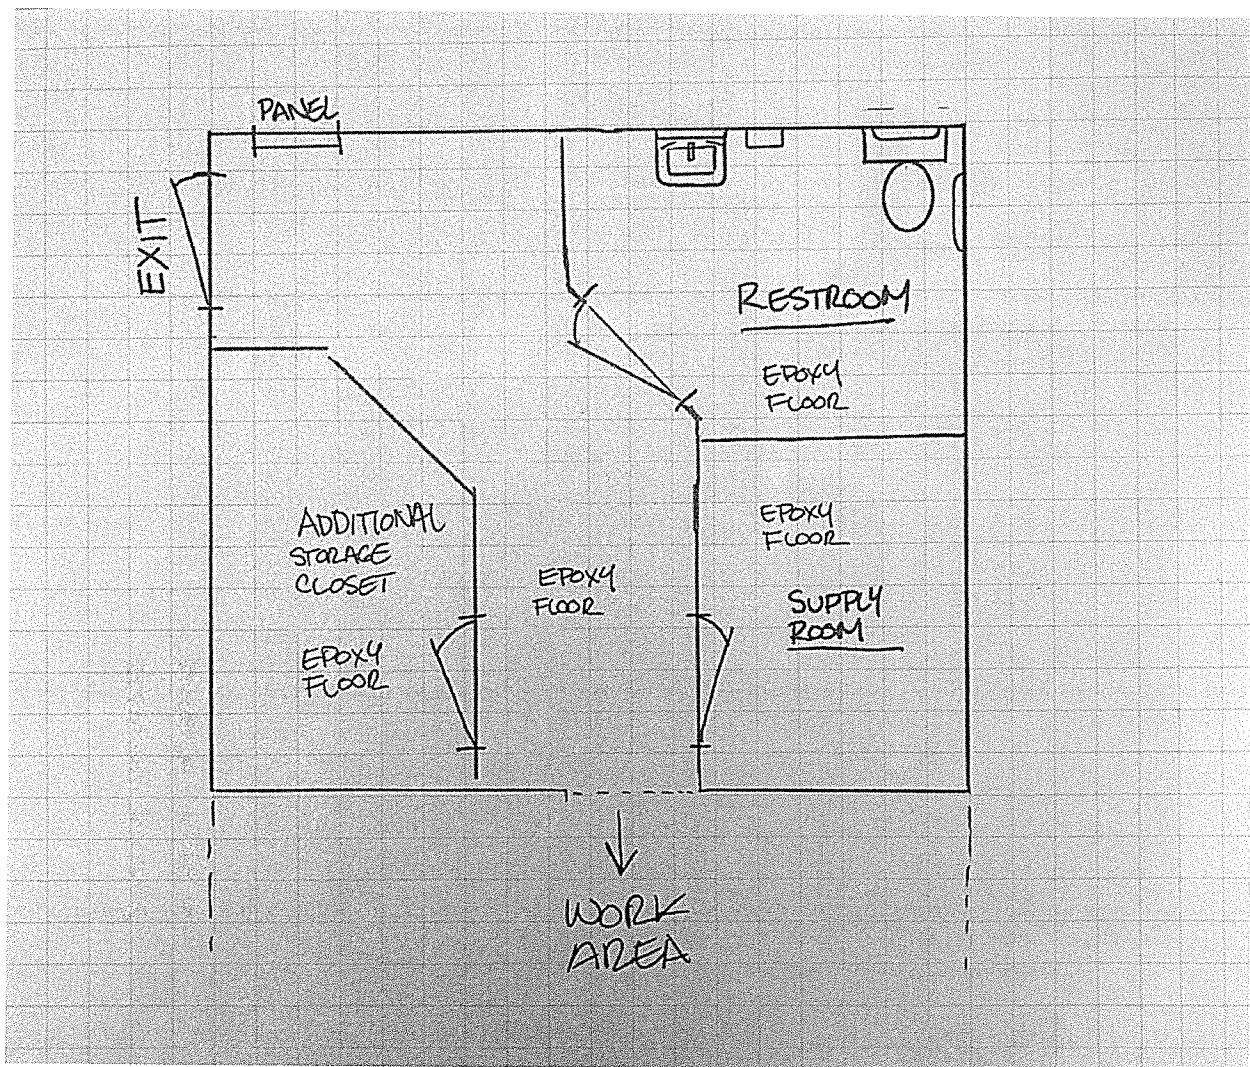 PANEL
EXIT
RESTROOM
EPOXY
FLOOR
ADDITIONAL
STORAGE
CLOSET
EPOXY
FLOOR
EPOXY
FLOOR
EPOXY
FLOOR
SUPPLY
ROOM
WORK
AREA